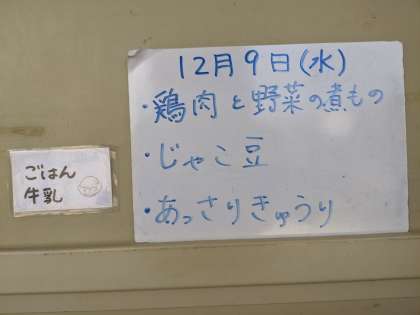 12月9日(水)
・鶏肉と野菜の煮もの
・じゃこ豆
・あっさりきゅうり
ごはん
牛乳